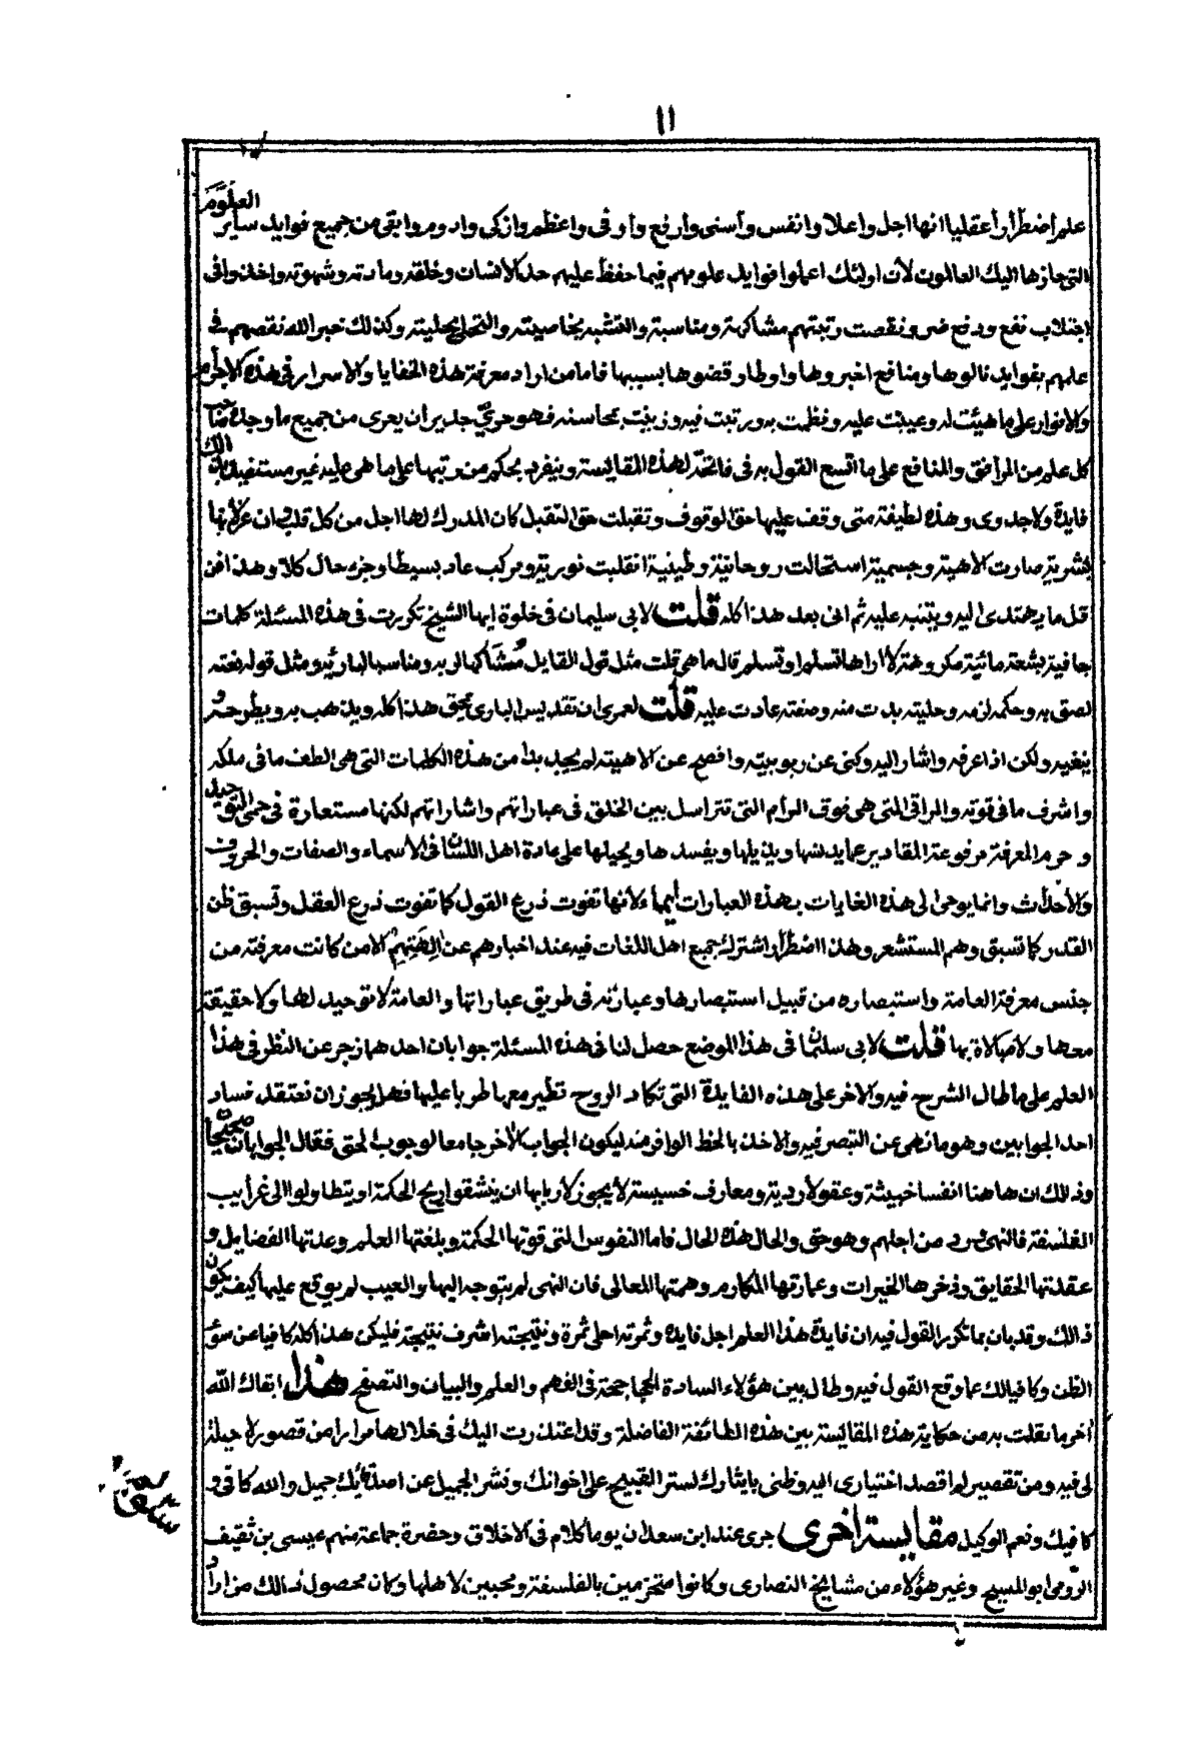 ١١
علم اضطرارا عقليا انها اجل واعلا وانفس وأسنى وارفع واوفى واعظم وازكى وادوم وابقى من جميع فوايد سأير العلوم
التى جازها اليك العالمون لأن اولئك اعملوا فوايد علومهم فيما حفظ عليهم حد الانسان وخلقه ومادته وشهوته واخذ وافى
اجتلاب نفع ودفع ضر ونقصت رتبتهم مشاكهة ومناسبة والتشبه بخاصيته والتحلى بحليته وكذلك خبر الله نقصهم فى
علمهم بفوايد نالوها ومنافع اغبروها واوطار قضوها بسببها فاما من اراد معرفة هذه الخفايا والاسرار فى هذه الاجرام
والانوار على ما هيئت له وعبئت عليه ونظمت به ورتبت فيه وزينت بمحاسنه فهو حرى جدير ان يعرى من جميع ما وجده صاحب
كل علم من المرافق والمنافع على ما اتسع القول به فى فاتحة هذه المقايسة وينفرد بحكم من رتبها على ما هى عليه غير مستفيد بذلك
فايدة ولا جدوى وهذه لطيفة متى وقف عليها حق الوقوف وتقبلت حق التقبل كان المدرك لها اجل من كل قلب وان عز لانها
بشرية صارت الاهية وجسمية استحالت روحانية وطينية انقلبت نورية ومركب عاد بسيطا وجزء حال كلا وهذا فن
قل ما يهتدى اليه ويتنبه عليه ثم انى بعد هذا كله قلت لابى سليمان فى خلوة ايها الشيخ تكررت فى هذه المسئلة كلمات
جافية بشعة مأبية مكروهة لا اراها تسلم او تسلم قال ما هى قلت مثل قول القايل مشاكها لربه ومناسبا لبارئه ومثل قوله نعته
لصق به وحكمه لزمه وحليته بدت منه وصفته عادت عليه قلت لعمرى ان تقديس البارى يمحق هذا كله ويذهب به ويطرحه و
ينفيه ولكن اذا عرفه واشار اليه وكنى عن ربوبيته وافصح عن الاهيته لم يجد بدا من هذه الكلمات التى هى الطف ما فى ملكه
واشرف ما فى قوته والراقى التى هى فوق الرام التى تتراسل بين الخلق فى عباراتهم واشاراتهم لكنها مستعارة فى حمى التوحيد
وحرم المعرفة مرفوعة المقادير عما يدنسها ويذيلها ويفسدها ويحيلها على عادة اهل اللسان فى الاسماء والصفات والحروف
والاحداث وانما يوحى الى هذه الغايات بهذه العبارات ايماء لانها تفوت ذرع القول كما تفوت ذرع العقل وتسبق ظن
القدر كما تسبق وهم المستشعر وهذا اضطرار اشترك جميع اهل اللغات فيه عند اخبارهم عن الهتهم الا من كانت معرفته من
جنس معرفة العامة واستبصاره من قبيل استبصارها وعبارته فى طريق عباراتها والعامة لا توحيد لها ولا حقيقة
معها ولا مبالاة بها قلت لابى سليمان فى هذا الموضع حصل لنا فى هذه المسئلة جوابان احدهما زجر عن النظر فى هذا
العلم على ما طال الشرح فيه والاخر على هذه الفايدة التى تكاد الروح تطير معها طربا عليها فهل يجوز ان نعتقد فساد
احد الجوابين وهو ما نهى عن التبصر فيه والاخذ بالحظ الوافر منه ليكون الجواب الاخر جامعا لوجوب الحق فقال الجوابان صحيحان
وذلك ان هاهنا انفسا خبيثة وعقولا ردية ومعارف خسيسة لا يجوز لاربابها ان ينشقوا ريح الحكمة او يتطاولوا الى غرايب
الفلسفة فالنهى ورد من اجلهم وهو حق والحال هذه الحال فاما النفوس التى قوتها الحكمة وبلغتها العلم وعدتها الفضايل و
عقدتها الحقايق وذخرها الخيرات وعمارتها المكارم وهمتها المعالى فان النهى لم يتوجه اليها والعيب لم يوقع عليها كيف يكون
ذالك وقد بان بما تكرر القول فيه ان فايدة هذا العلم اجل فايدة وثمرته احلى ثمرة ونتيجته اشرف نتيجة فليكن هذا كله كافيا عن سوء
الظن وكافيا لك عما وقع القول فيه وطال بين هؤلاء السادة الجحاجحة فى الفهم والعلم والبيان والتصفح هذا ابقاك الله
آخر ما نقلت به من حكاية هذه المقايسة بين هذه الطائفة الفاضلة وقد اعتذرت اليك فى خلالها مرارا من قصور لا حيلة
لى فيه ومن تقصير لم اقصد اختيارى اليه وظنى بايثارك لستر القبيح على اخوانك ونشر الجميل عن اصدقائك جميل والله كافى و
كافيك ونعم الوكيل مقايسة اخرى جرى عند ابن سعدان يوما كلام فى الاخلاق وحضره جماعة منهم عيسى بن ثقيف
الرومى ابو المسيح وغير هؤلاء من مشايخ النصارى وكانوا متحرمين بالفلسفة ومحبين لاهلها وكان محصول ذالك من اراد